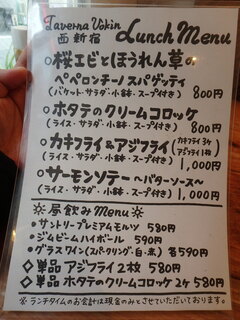 Taverna Vokin
西新宿 Lunch Menu
○桜エビとほうれん草の
ペペロンチーノスパゲッティ
(バケット・サラダ・小鉢・スープ付き) 800円
○ホタテのクリームコロッケ
(ライス・サラダ・小鉢・スープ付き) 800円
○カキフライ&アジフライ (カキフライ3ケ アジフライ1枚)
(ライス・サラダ・小鉢・スープ付き) 1,000円
○サーモンソテー ~バターソース~
(ライス・サラダ・小鉢・スープ付き) 1,000円
☼昼飲みMenu☼
●サントリープレミアムモルツ 580円
●ジムビームハイボール 590円
●グラスワイン(スパークリング・白・赤) 各590円
◇単品 アジフライ2枚 580円
◇単品 ホタテのクリームコロッケ2ケ 580円
※ランチタイムのお会計は現金のみとさせていただいております。